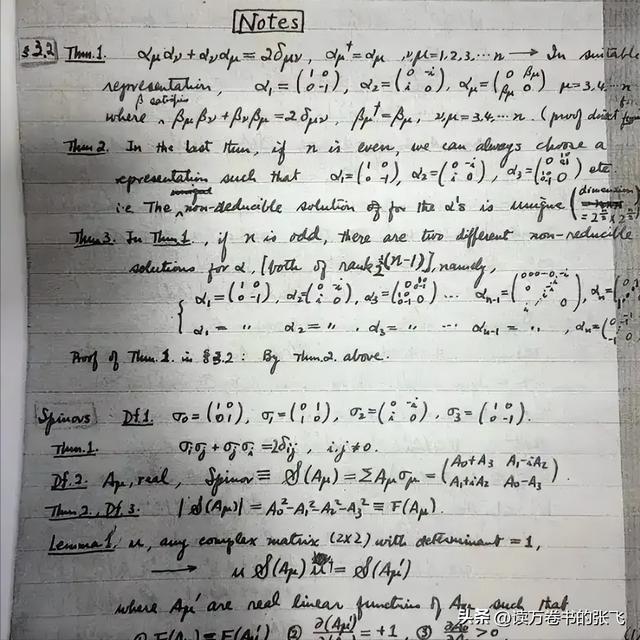 Notes
§3.2 Thm.1. αμαν + αναμ = 2δμν, αμ† = αμ, ν,μ=1,2,3,⋯n → In suitable
representation, α1 = (1 0; 0 -1), α2 = (0 -i; i 0), αμ = (0 βμ; βμ 0) μ=3,4,⋯
β satisfies
where βμβν + βνβμ = 2δμν, βμ† = βμ, ν,μ=3,4,⋯n. (proof direct from
Thm 2. In the last thm, if n is even, we can always choose a
representation such that α1=(1 0; 0 -1), α2=(0 -i; i 0), α3= etc
i.e. The non-deducible solution for the α's is unique (dimension
Thm 3. In Thm 1, if n is odd, there are two different non-reducible
solutions for α, [both of rank (n-1)], namely,
α1=(1 0; 0 -1), α2=(0 -i; i 0), α3= ⋯ αn-1= , αn=
α1 = " α2 = " . α3 = " ⋯ αn-1 = " , αn=
Proof of Thm.1 in §3.2: By Thm.2 above.
Spinors Df.1. σ0=(1 0; 0 1), σ1=(0 1; 1 0), σ2=(0 -i; i 0), σ3=(1 0; 0 -1).
Thm.1. σiσj + σjσi = 2δij, i,j≠0.
Df.2. Aμ, real, Spinor ≡ S(Aμ) = ΣAμσμ = (A0+A3 A1-iA2; A1+iA2 A0-A3).
Thm 2, Df.3. |S(Aμ)| = A0²-A1²-A2²-A3² ≡ F(Aμ).
Lemma 1, u, any complex matrix (2x2) with determinant = 1,
→ u S(Aμ) = S(Aμ')
where Aμ' are real linear functions of Aμ such that
① F(Aμ) = F(Aμ') ② = +1, ③ >0
头条 @读万卷书的张飞